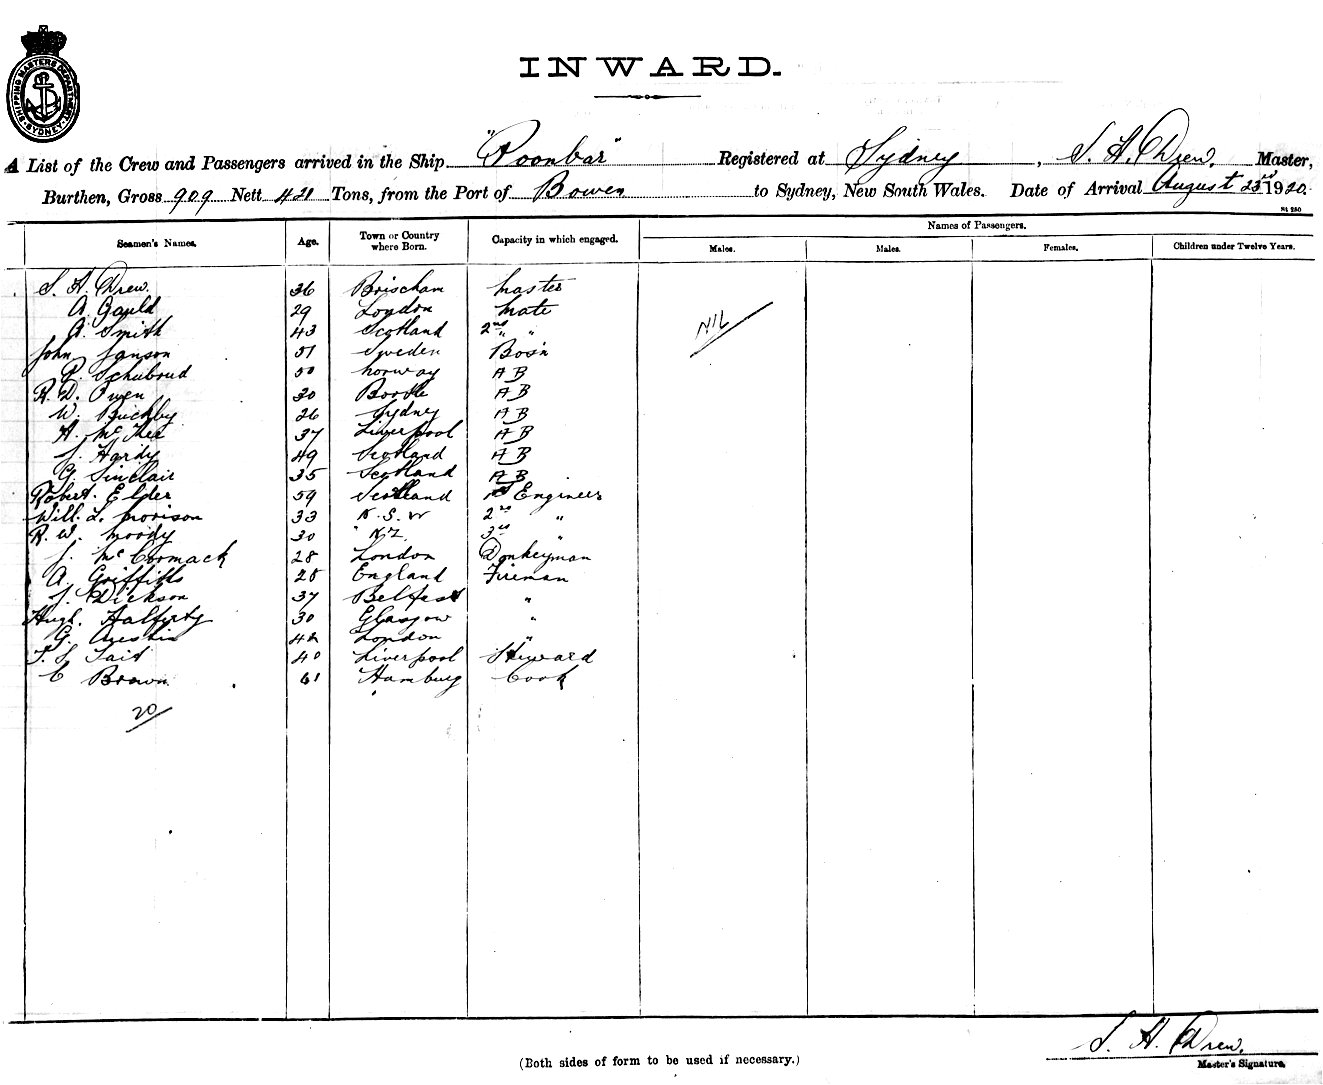 SHIPPING MASTERS DEPARTMENT SYDNEY
INWARD.
A List of the Crew and Passengers arrived in the Ship "Poonbar" Registered at Sydney, S. H. Drew. Master,
Burthen, Gross 909 Nett 421 Tons, from the Port of Bowen to Sydney, New South Wales. Date of Arrival August 23rd 1920.
St 250
Names of Passengers.
Seamen's Names. Age. Town or Country where Born. Capacity in which engaged. Males. Males. Females. Children under Twelve Years.
S. H. Drew. 36 Brischam Master
A. Gauld 29 London Mate
NIL
A. Smith 43 Scotland 2nd "
John Janson 51 Sweden Bos'n
P. Schubrud 50 Norway AB
R. D. Owen 30 Bootle AB
W. Buckby 26 Sydney AB
H. McKee 37 Liverpool AB
J. Hardy 49 Scotland AB
G. Sinclair 35 Scotland AB
Robert. Elder 59 Scotland 1st Engineer
Will. L. Morison 33 N.S.W 2nd "
R. W. Moody 30 " N.Z. 3rd "
J. McCormack 28 London Donkeyman
A. Griffiths 28 England Fireman
J. Dickson 37 Belfast "
Hugh. Halferty 30 Glasgow "
G. Austin 42 London "
T. S. Tait 40 Liverpool Steward
C Brown 61 Hamburg Cook
20
S. H. Drew.
(Both sides of form to be used if necessary.)
Master's Signature.